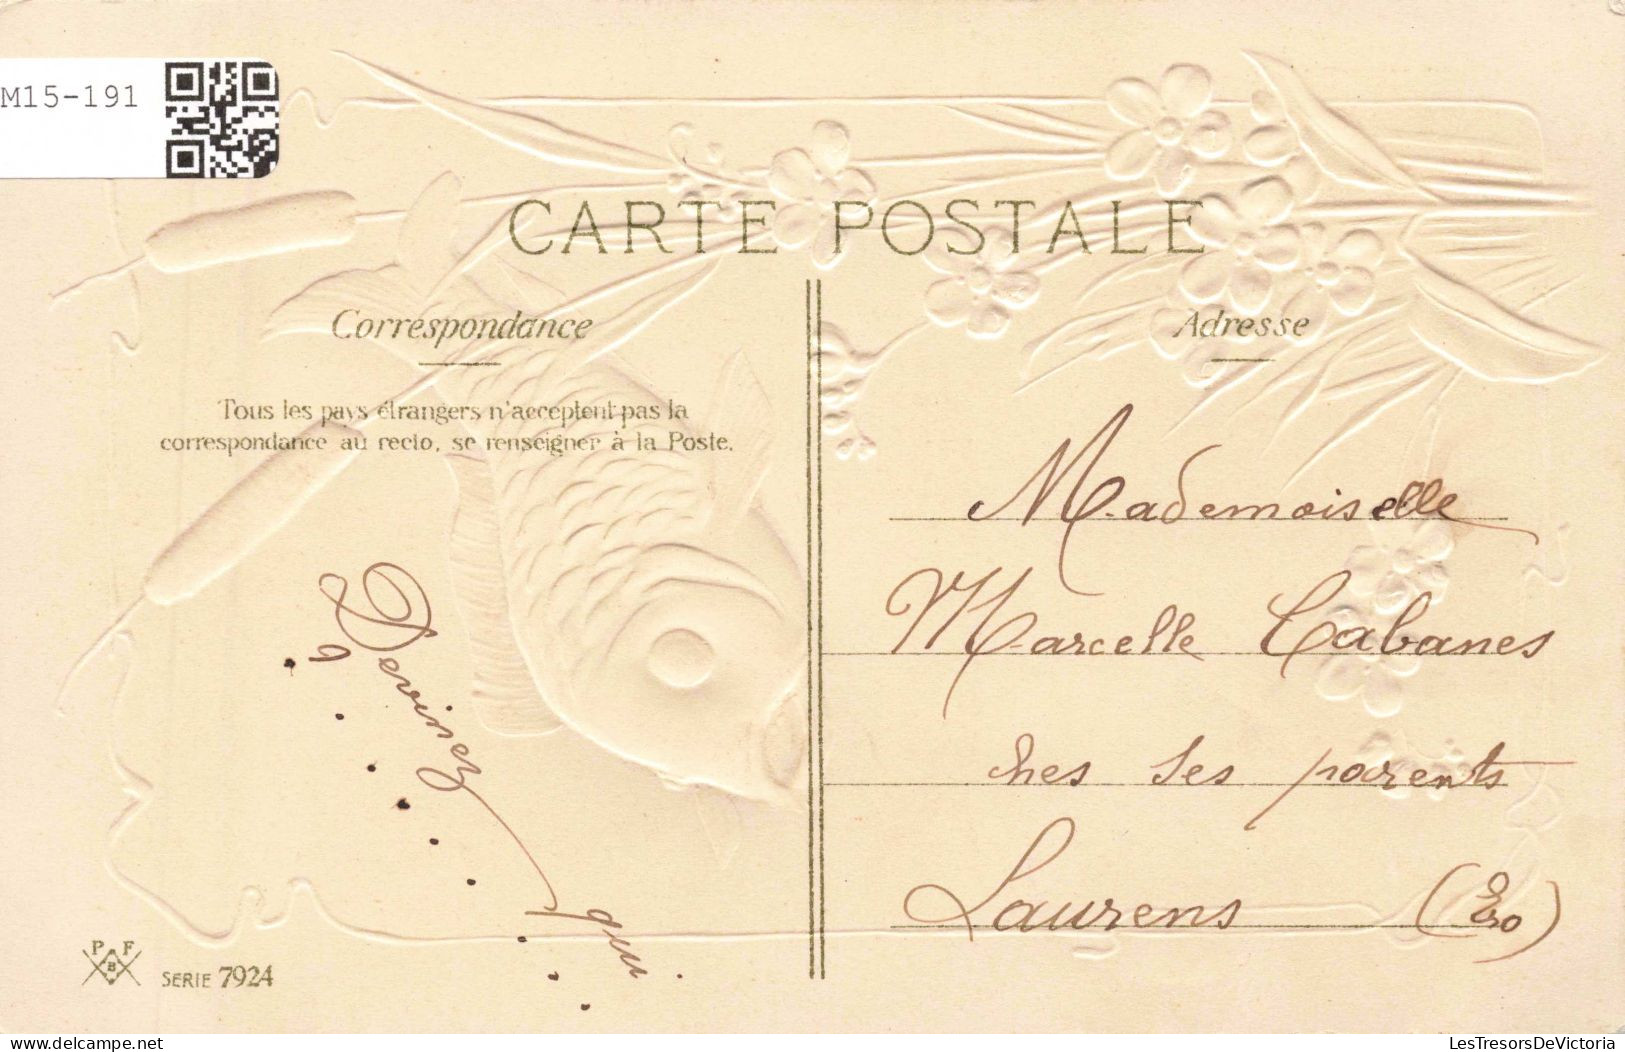 M15-191
CARTE POSTALE
Correspondance
Tous les pays étrangers n'acceptent pas la
correspondance au recto, se renseigner à la Poste.
Devinez qui
?
Adresse
Mademoiselle
Marcelle Cabanes
ches ses parents
Laurens (Ero)
P F
B
SERIE 7924
delcampe.net
LesTresorsDeVictoria